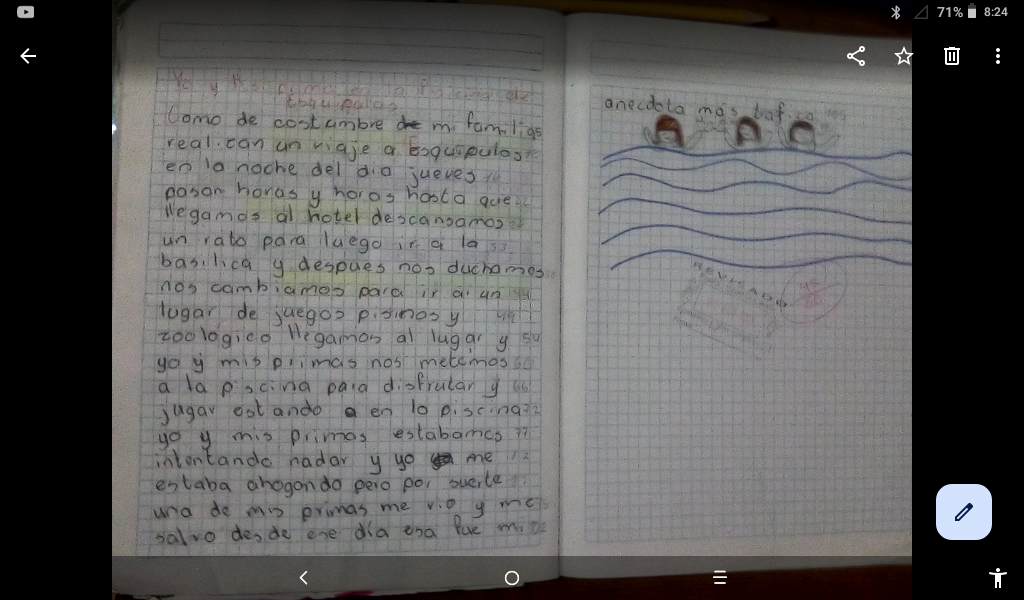 71% 8:24
Yo y mis primas en la Piscina de
Esquipulas
Como de costumbre de mi familia
realizan un viaje a esquipulas
en la noche del dia jueves
pasan horas y horas hasta que
llegamos al hotel descansamos
un rato para luego ir a la
basilica y despues nos duchamos
nos cambiamos para ir a un
lugar de juegos pisinos y
zoologico llegamos al lugar y
yo y mis primas nos metemos
a la piscina para disfrutar y
jugar estando a en la piscina
yo y mis primas estabamos
intentando nadar y yo me
estaba ahogando pero por suerte
una de mis primas me vio y me
salvo desde ese día esa fue mi
anecdota más trafica
REVISADO